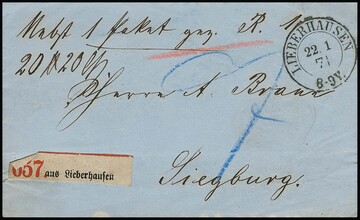 Nebst 1 Paket gez. R. 1
LIEBERHAUSEN
22 1
71
8-9V.
20 ℔ 20
Herrn A. Braun
057 aus Lieberhausen
Siegburg.